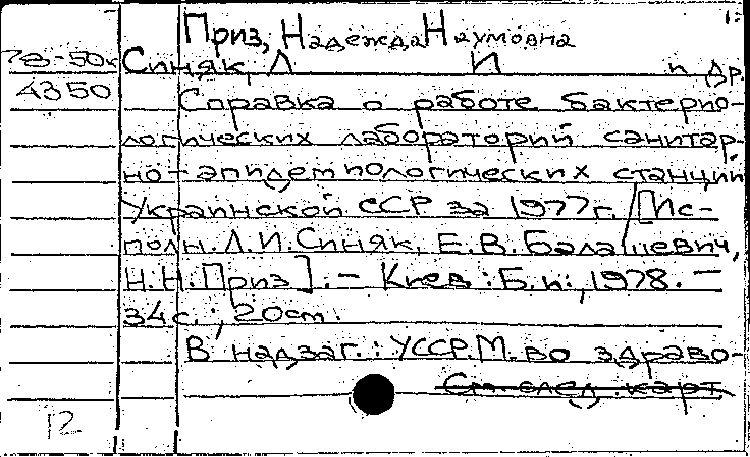 Приз, Надежда Наумовна
78-50к Синяк, Л И и др.
4350 Справка о работе бактерио-
логических лабораторий санитар-
но-эпидемиологических станций
Украинской ССР за 1977г. / [Ис-
полн. Л.И. Синяк, Е.В. Балашевич,
Н.Н. Приз]. — Киев : Б.и., 1978. —
34с. ; 20см.
В надзаг.: УССР. М-во здраво-
См. след. карт.
12